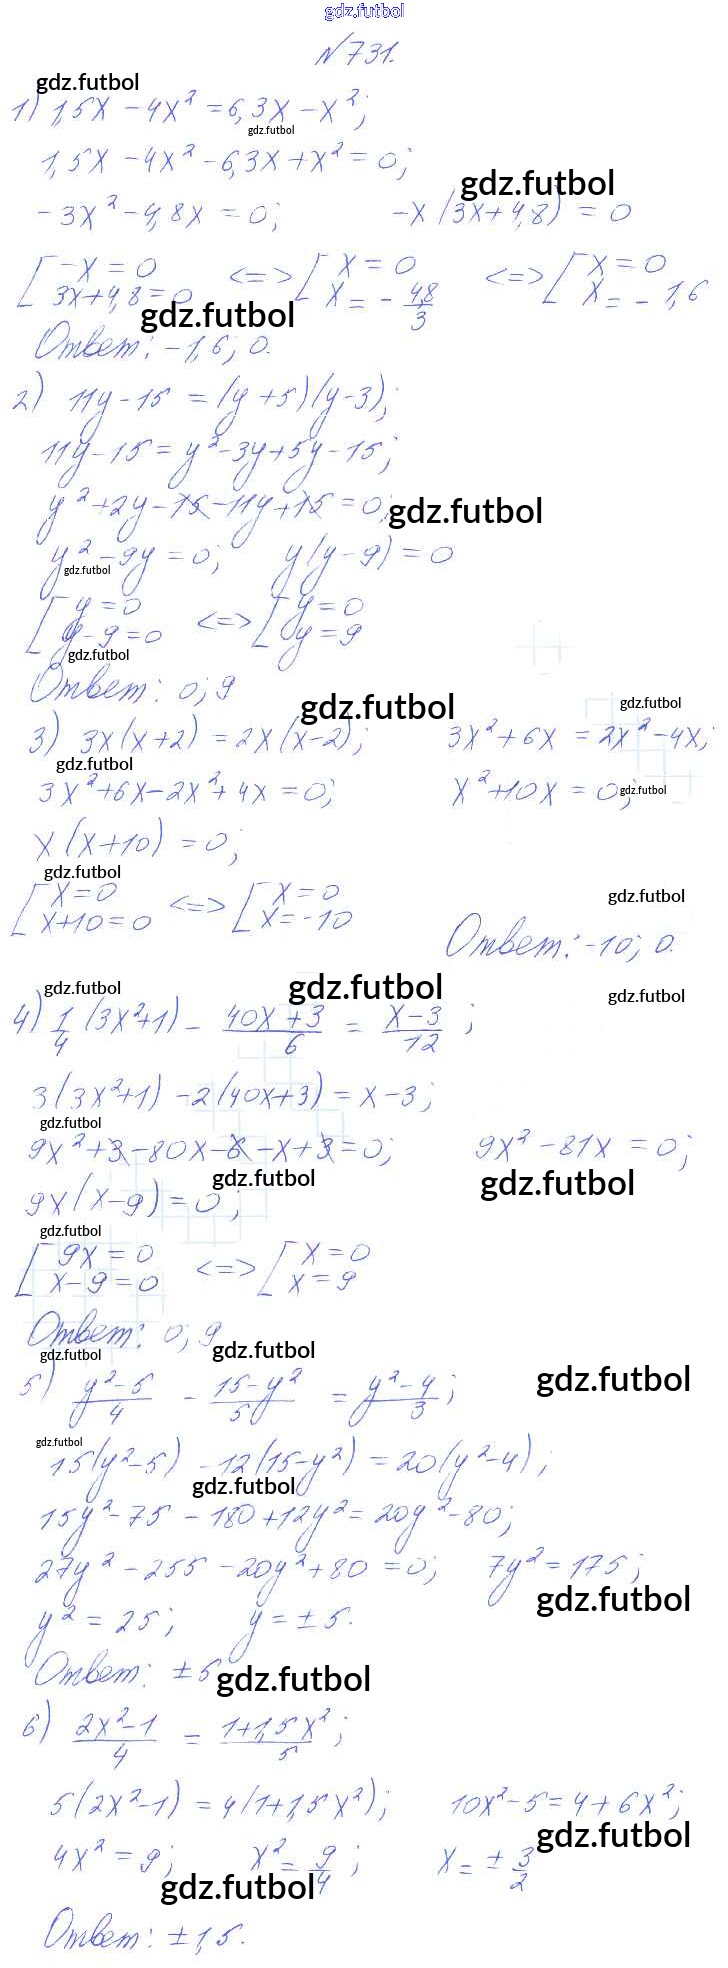 gdz.futbol
№731.
gdz.futbol
1) 1,5x - 4x² = 6,3x - x²;
gdz.futbol
1,5x - 4x² - 6,3x + x² = 0;
gdz.futbol
-3x² - 4,8x = 0; -x(3x+4,8) = 0
[ -x = 0 <=> [ x = 0 <=> [ x = 0
3x+4,8=0 x = - 4,8/3 x = - 1,6
gdz.futbol
Ответ: -1,6; 0.
2) 11y - 15 = (y + 5)(y - 3);
11y - 15 = y² - 3y + 5y - 15;
y² + 2y - 15 - 11y + 15 = 0;
gdz.futbol
y² - 9y = 0; y(y - 9) = 0
gdz.futbol
[ y = 0 <=> [ y = 0
y - 9 = 0 y = 9
gdz.futbol
Ответ: 0; 9
gdz.futbol
gdz.futbol
3) 3x(x+2) = 2x(x-2); 3x² + 6x = 2x² - 4x;
gdz.futbol
3x² + 6x - 2x² + 4x = 0; x² + 10x = 0;
gdz.futbol
x(x+10) = 0;
gdz.futbol
[ x = 0 <=> [ x = 0
x+10 = 0 x = -10
gdz.futbol
Ответ: -10; 0.
gdz.futbol
gdz.futbol
gdz.futbol
4) 1/4 (3x²+1) - 40x+3/6 = x-3/12;
3(3x²+1) - 2(40x+3) = x - 3;
gdz.futbol
9x² + 3 - 80x - 6 - x + 3 = 0; 9x² - 81x = 0;
gdz.futbol
gdz.futbol
9x(x-9) = 0;
gdz.futbol
[ 9x = 0 <=> [ x = 0
x - 9 = 0 x = 9
Ответ: 0; 9
gdz.futbol
gdz.futbol
gdz.futbol
5) y²-5/4 - 15-y²/5 = y²-4/3;
gdz.futbol
15(y²-5) - 12(15-y²) = 20(y²-4);
gdz.futbol
15y² - 75 - 180 + 12y² = 20y² - 80;
27y² - 255 - 20y² + 80 = 0; 7y² = 175;
gdz.futbol
y² = 25; y = ± 5.
Ответ: ± 5
gdz.futbol
6) 2x²-1/4 = 1+1,5x²/5;
5(2x²-1) = 4(1+1,5x²); 10x² - 5 = 4 + 6x²;
gdz.futbol
4x² = 9; x² = 9/4; x = ± 3/2
gdz.futbol
Ответ: ± 1,5.